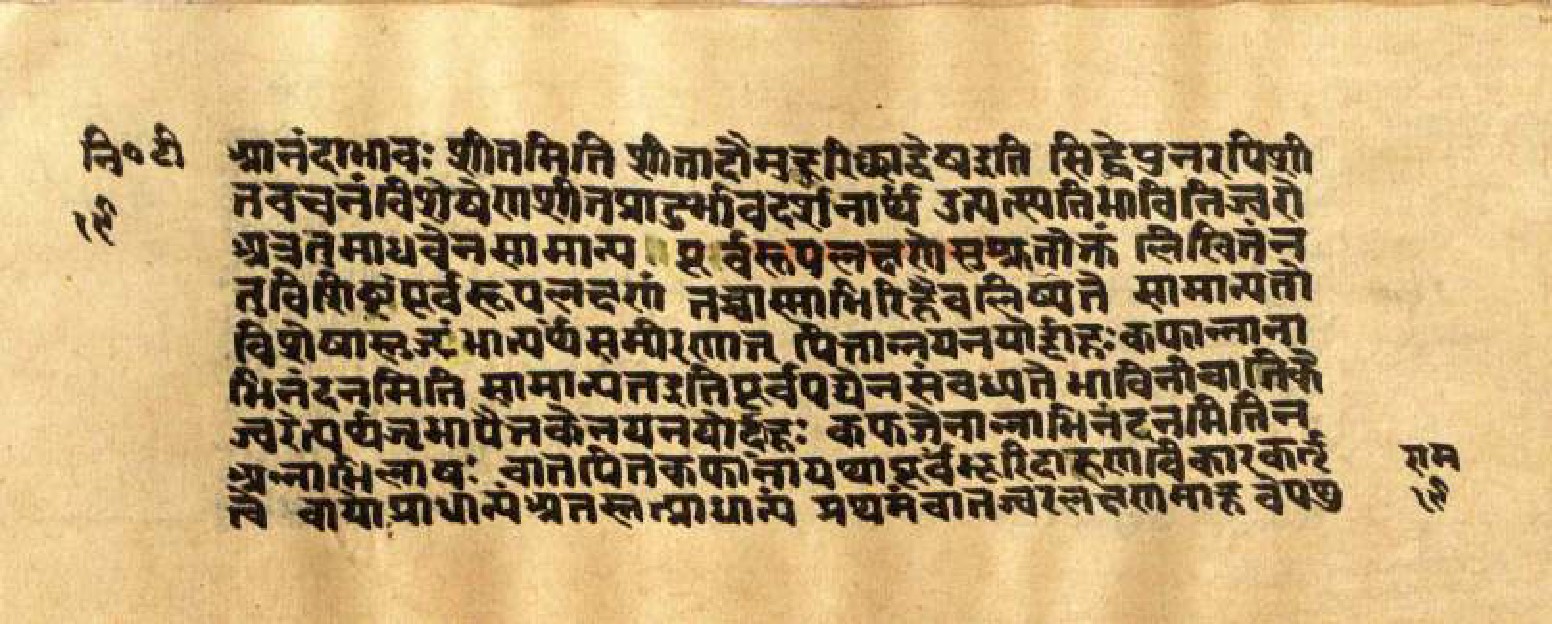 नि॰टी
आनंदाभावः शीतमिति शीतादौमुहुरिछाद्वेषइति सिद्धेपुनरपिशी
तवचनंविशेषेणशीतप्रादुर्भावदर्शनार्थं उत्पत्स्यतिभावितिज्वरो
अत्रतुमाधवेनसामान्य पूर्वरूपलक्षणेसुश्रुतोक्तं लिखितंन
तुविशिष्टंपूर्वरूपलक्षणं तच्चास्माभिरिहैवलिष्यते सामान्यतो
विशेषास्तुजृंभात्यर्थंसमीरणात् पित्तान्नयनयोर्दाहःकफान्नाना
भिनंदनमिति सामान्यतइतिपूर्वपद्येनसंबध्यते भाविनीवातिके
ज्वरेत्पर्थंजृभापैत्तकेनयनयोर्दाहः कफजेनान्नाभिनंदनमितिन
अन्नाभिलाषः वातपितकफानांयथापूर्वंभूरिदारुणविकारकर्तृ
त्वे वायोप्राधान्यंअतस्तत्प्राधान्यं प्रथमंवातज्वरलक्षणमाह वेपथु
राम